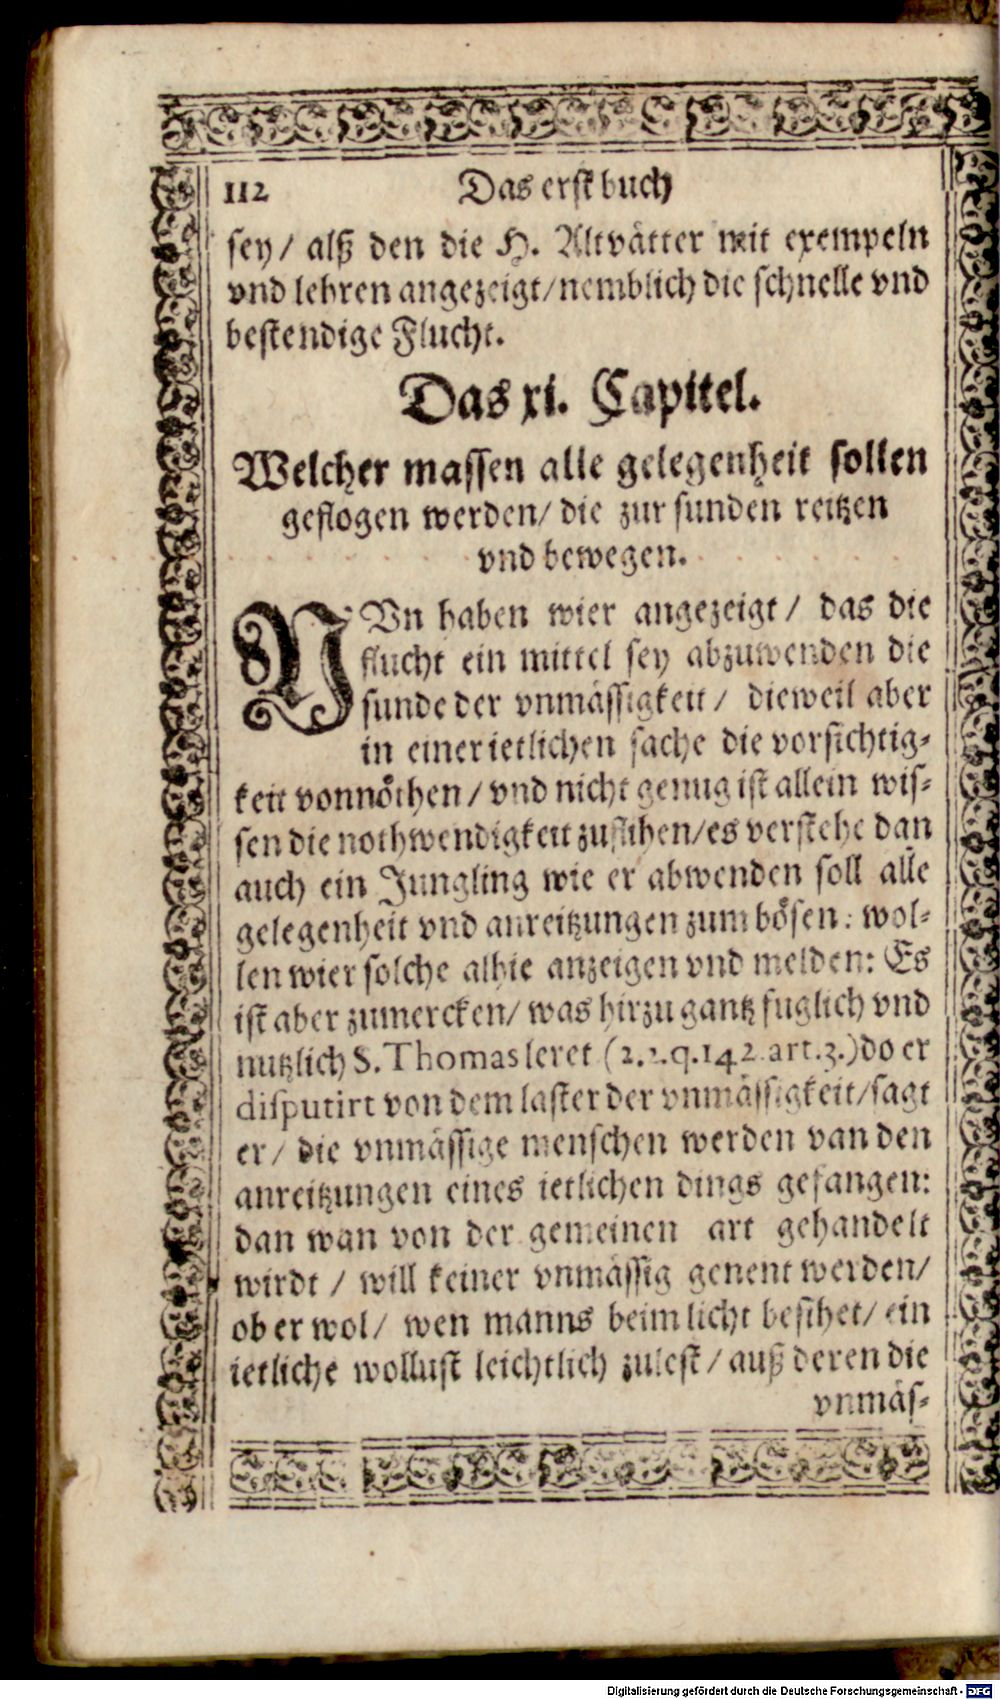 112 Das erst buch
sey/ alß den die H. Altvätter mit exempeln
vnd lehren angezeigt/ nemblich die schnelle vnd
bestendige Flucht.
Das xi. Capitel.
Welcher massen alle gelegenheit sollen
geflogen werden/ die zur sunden reitzen
vnd bewegen.
NVn haben wier angezeigt/ das die
flucht ein mittel sey abzuwenden die
sunde der vnmässigkeit/ dieweil aber
in einer ietlichen sache die vorsichtig-
keit vonnöthen/ vnd nicht genug ist allein wis-
sen die nothwendigkeit zuflihen/ es verstehe dan
auch ein Jungling wie er abwenden soll alle
gelegenheit vnd anreitzungen zum bösen: wol-
len wier solche alhie anzeigen vnd melden: Es
ist aber zumercken/ was hirzu gantz fuglich vnd
nutzlich S. Thomas leret (2.2.q.142.art.3.) do er
disputirt von dem laster der vnmässigkeit/ sagt
er/ die vnmässige menschen werden van den
anreitzungen eines ietlichen dings gefangen:
dan wan von der gemeinen art gehandelt
wirdt/ will keiner vnmässig genent werden/
ob er wol/ wen manns beim licht besihet/ ein
ietliche wollust leichtlich zulest/ auß deren die
vnmäs-
Digitalisierung gefördert durch die Deutsche Forschungsgemeinschaft - DFG